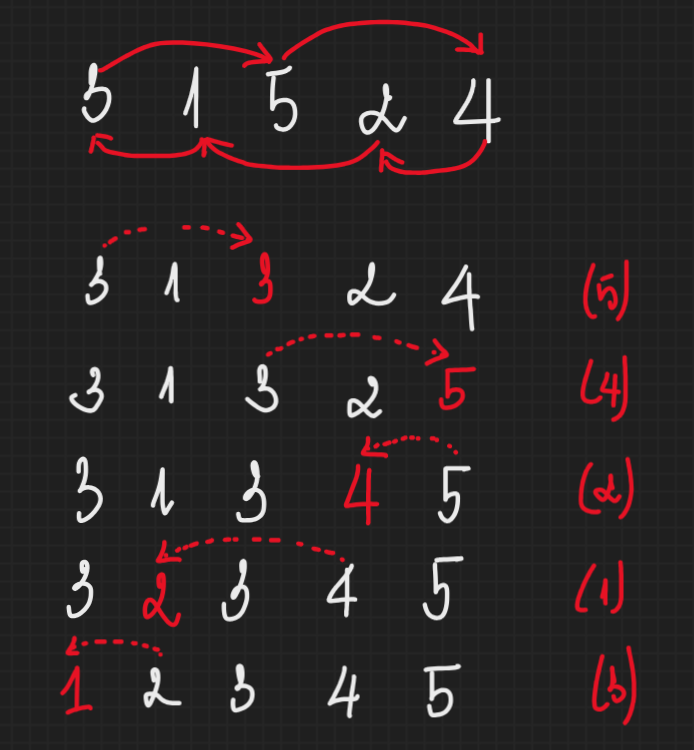 3 1 5 2 4
3 1 3 2 4 (5)
3 1 3 2 5 (4)
3 1 3 4 5 (2)
3 2 3 4 5 (1)
1 2 3 4 5 (3)